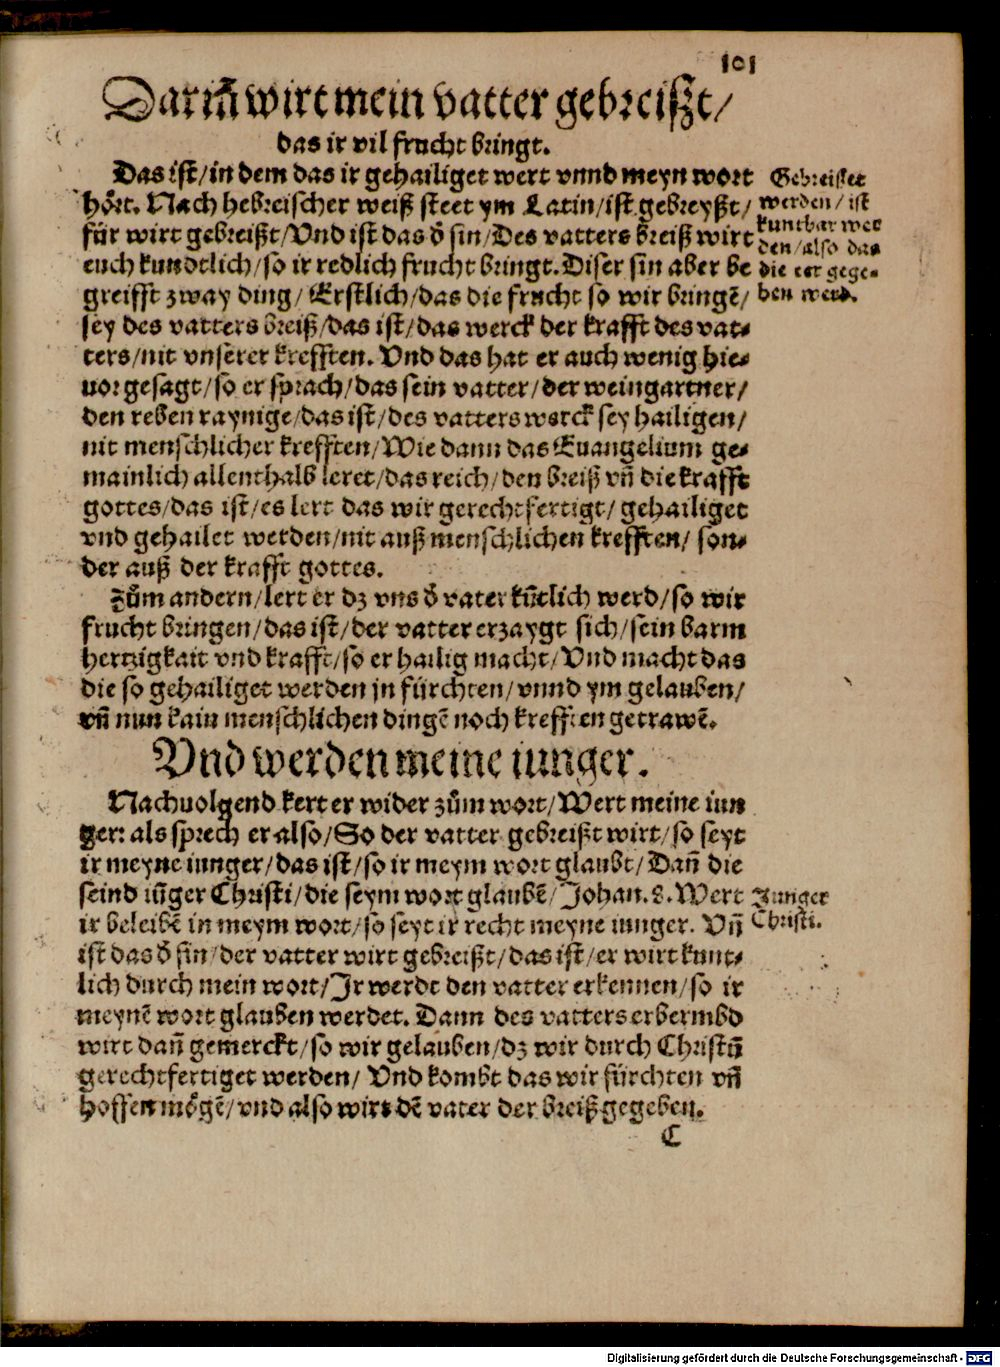 101
Darin̄ wirt mein vatter gebreiſzt/
das ir vil frucht bringt.
Das iſt/in dem das ir gehailiget wert vnnd meyn wort
hoͤrt. Nach hebreiſcher weiß ſteet ym Latin/iſt gebreyßt/
fuͤr wirt gebreißt/Vnd iſt das d̄ ſin/Des vatters breiß wirt
euch kundtlich/ſo ir redlich frucht bringt. Diſer ſin aber be
greifft zway ding/ Erſtlich/das die frucht ſo wir bringē/
ſey des vatters breiß/das iſt/das werck der krafft des vat⸗
ters/nit vnſerer krefften. Vnd das hat er auch wenig hie⸗
uor geſagt/ſo er ſprach/das ſein vatter/der weingartner/
den reben raynige/das iſt/des vatters werck ſey hailigen/
nit menſchlicher krefften/Wie dann das Euangelium ge⸗
mainlich allenthalb leret/das reich/den breiß vn̄ die krafft
gottes/das iſt/es lert das wir gerechtfertigt/ gehailiget
vnd gehailet werden/nit auß menſchlichen krefften/ ſon⸗
der auß der krafft gottes.
Zům andern/lert er dz vns d̄ vater kūtlich werd/ſo wir
frucht bringen/das iſt/der vatter erzaygt ſich/ſein barm
hertzigkait vnd krafft/ſo er hailig macht/Vnd macht das
die ſo gehailiget werden jn fürchten/vnnd ym gelauben/
vn̄ nun kain menſchlichen dingē noch krefften getrawē.
Vnd werden meine iunger.
Nachuolgend kert er wider zům wort/Wert meine iun
ger: als ſprech er alſo/So der vatter gebreißt wirt/ſo ſeyt
ir meyne iunger/das iſt/ſo ir meym wort glaubt/Dan̄ die
ſeind iūger Chriſti/die ſeym wort glaubē/Johan. 8. Wert
ir beleibē in meym wort/ſo ſeyt ir recht meyne iunger. Vn̄
iſt das d̄ ſin/der vatter wirt gebreißt/das iſt/er wirt kunt⸗
lich durch mein wort/Ir werdt den vatter erkennen/ſo ir
meynē wort glauben werdet. Dann des vatters erbermbd
wirt dan̄ gemerckt/ſo wir gelauben/dz wir durch Chriſtū
gerechtfertiget werden/ Vnd kombt das wir fürchten vn̄
hoffen moͤgē/vnd alſo wirt dē vater der breiß gegeben.
C
Gebreiſſet
werden/ iſt
kuntbar wer
den/alſo das
die eer gege⸗
ben werd.
Junger
Chriſti.
Digitalisierung gefördert durch die Deutsche Forschungsgemeinschaft - DFG